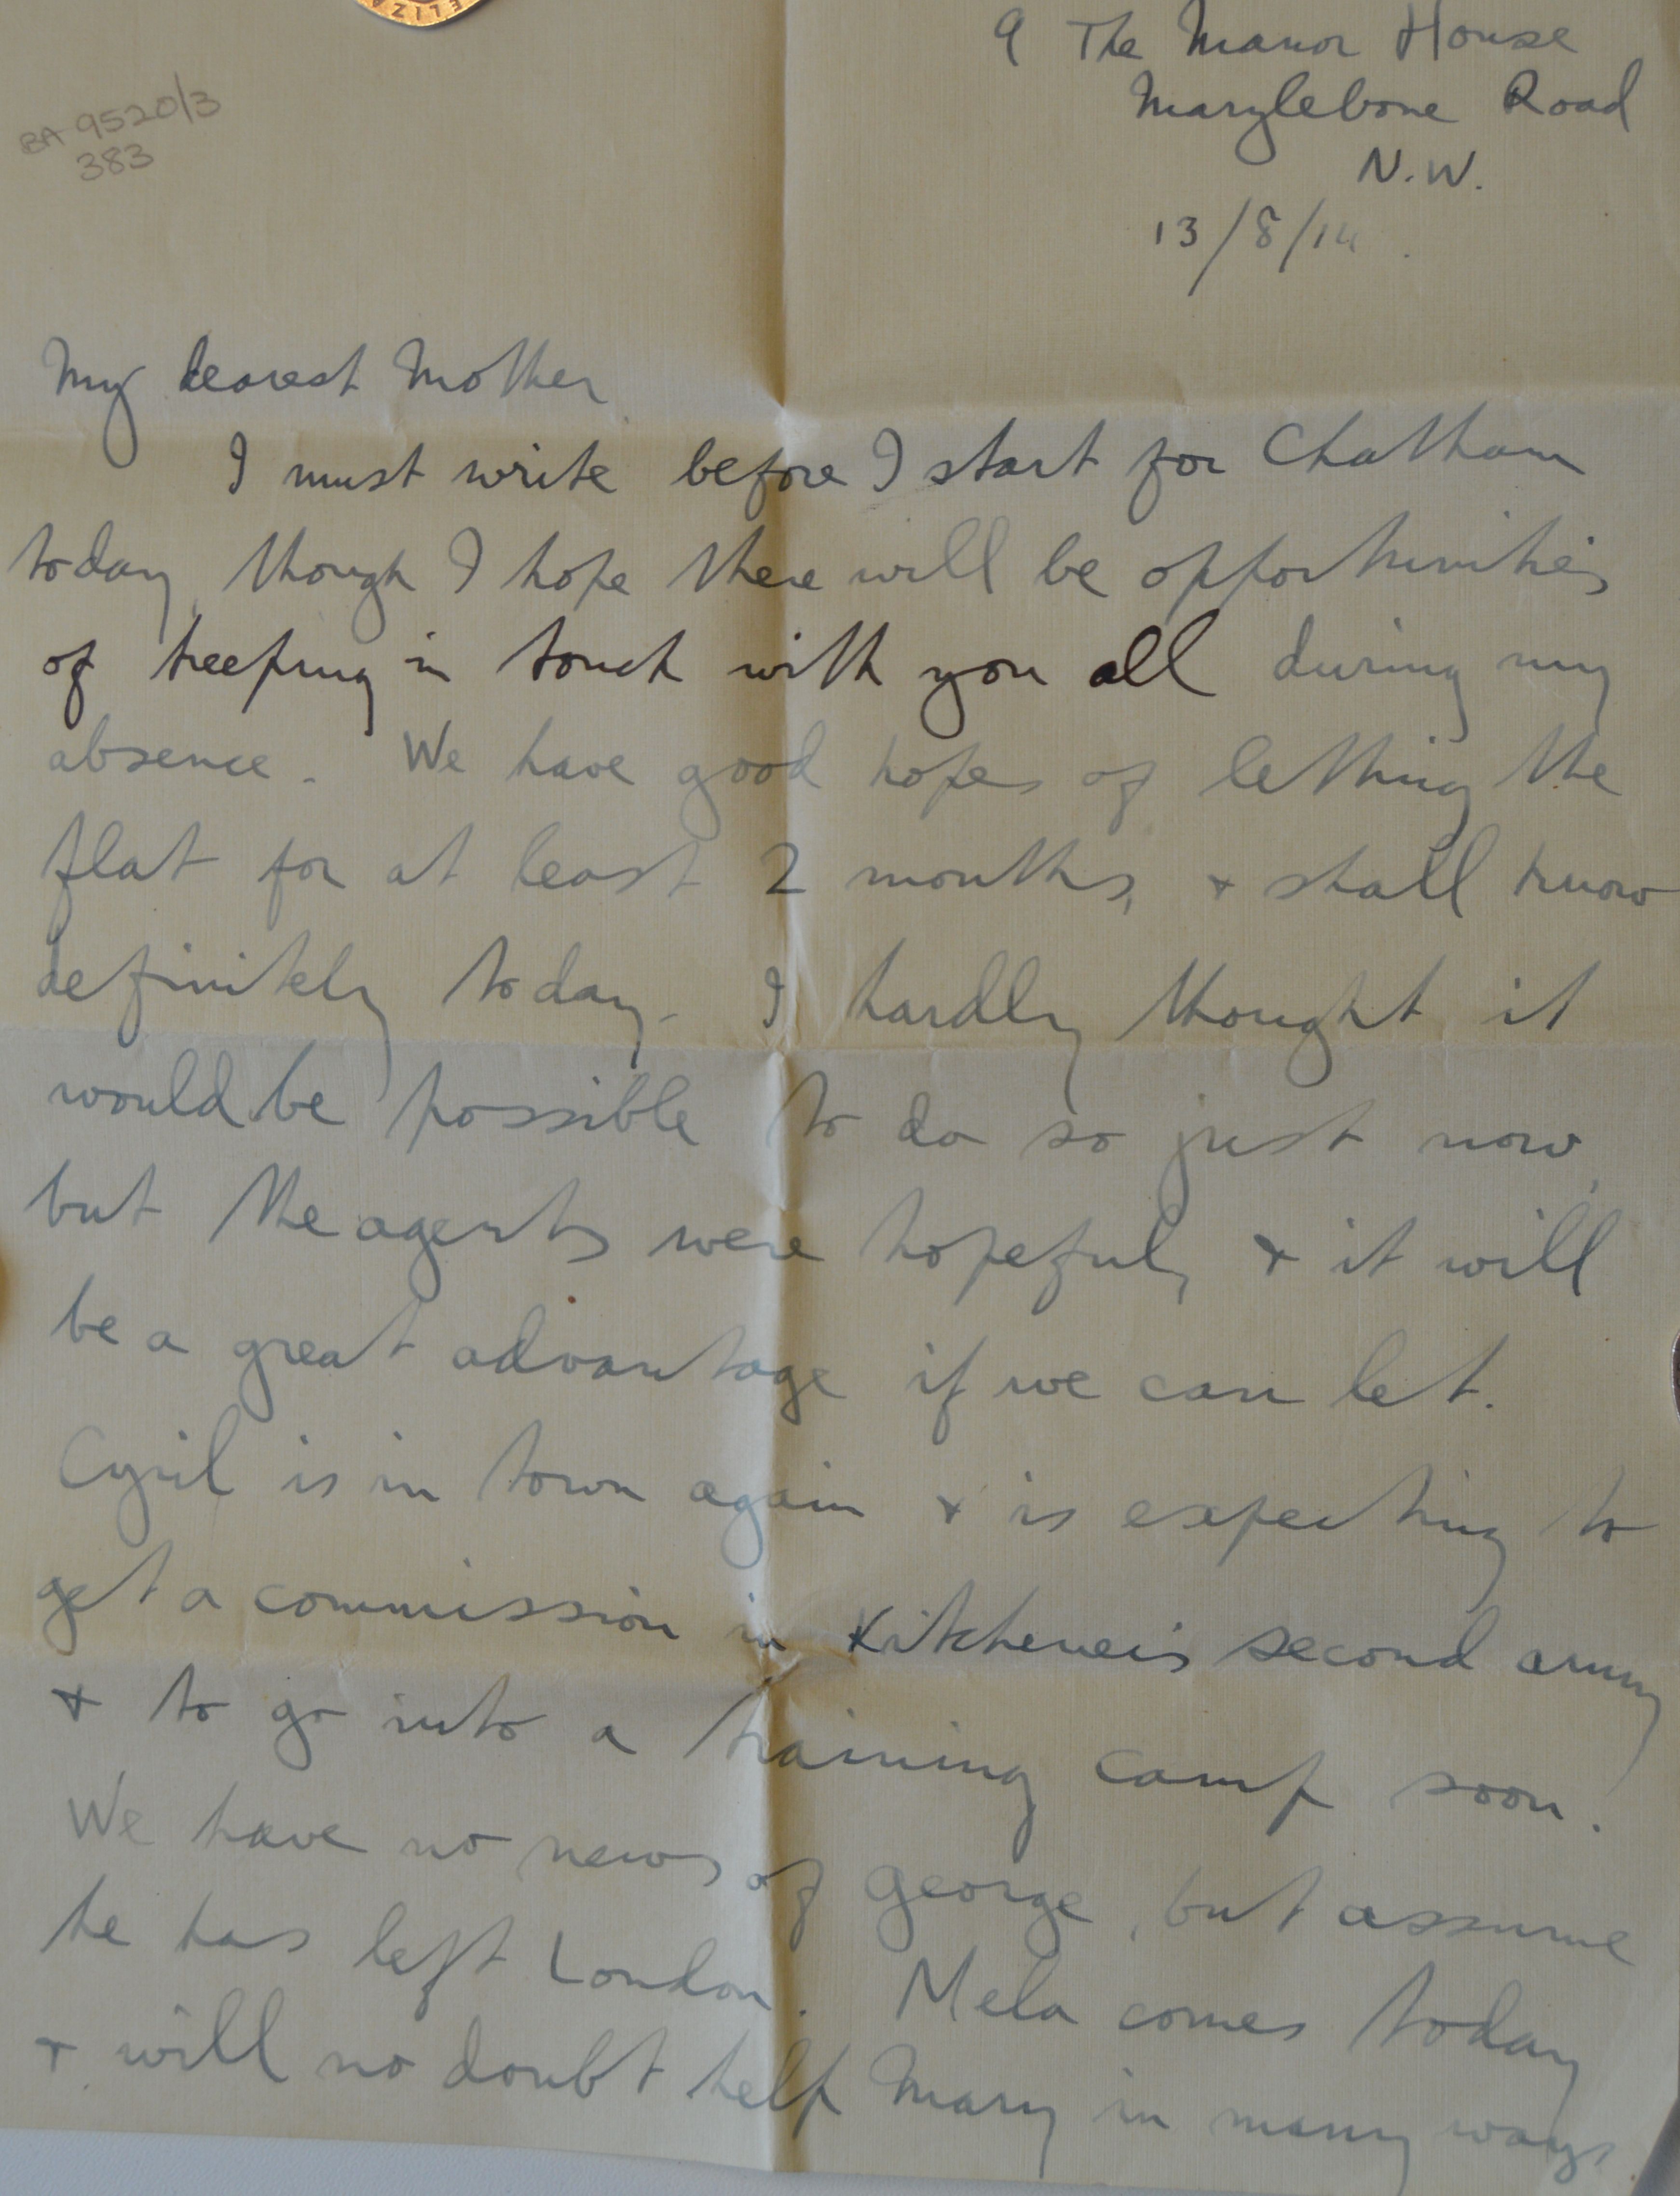 ELIZA
9 The Manor House
Marylebone Road
N.W.
13/8/14.
BA 9520/3
383
My dearest Mother
I must write before I start for Chatham
today, though I hope there will be opportunities
of keeping in touch with you all during my
absence. We have good hopes of letting the
flat for at least 2 months, & shall know
definitely today. I hardly thought it
would be possible to do so just now,
but the agents were hopeful, & it will
be a great advantage if we can let.
Cyril is in town again & is expecting to
get a commission in Kitchener's second army
& to go into a training camp soon.
We have no news of George, but assume
he has left London. Mela comes today
& will no doubt help Mary in many ways